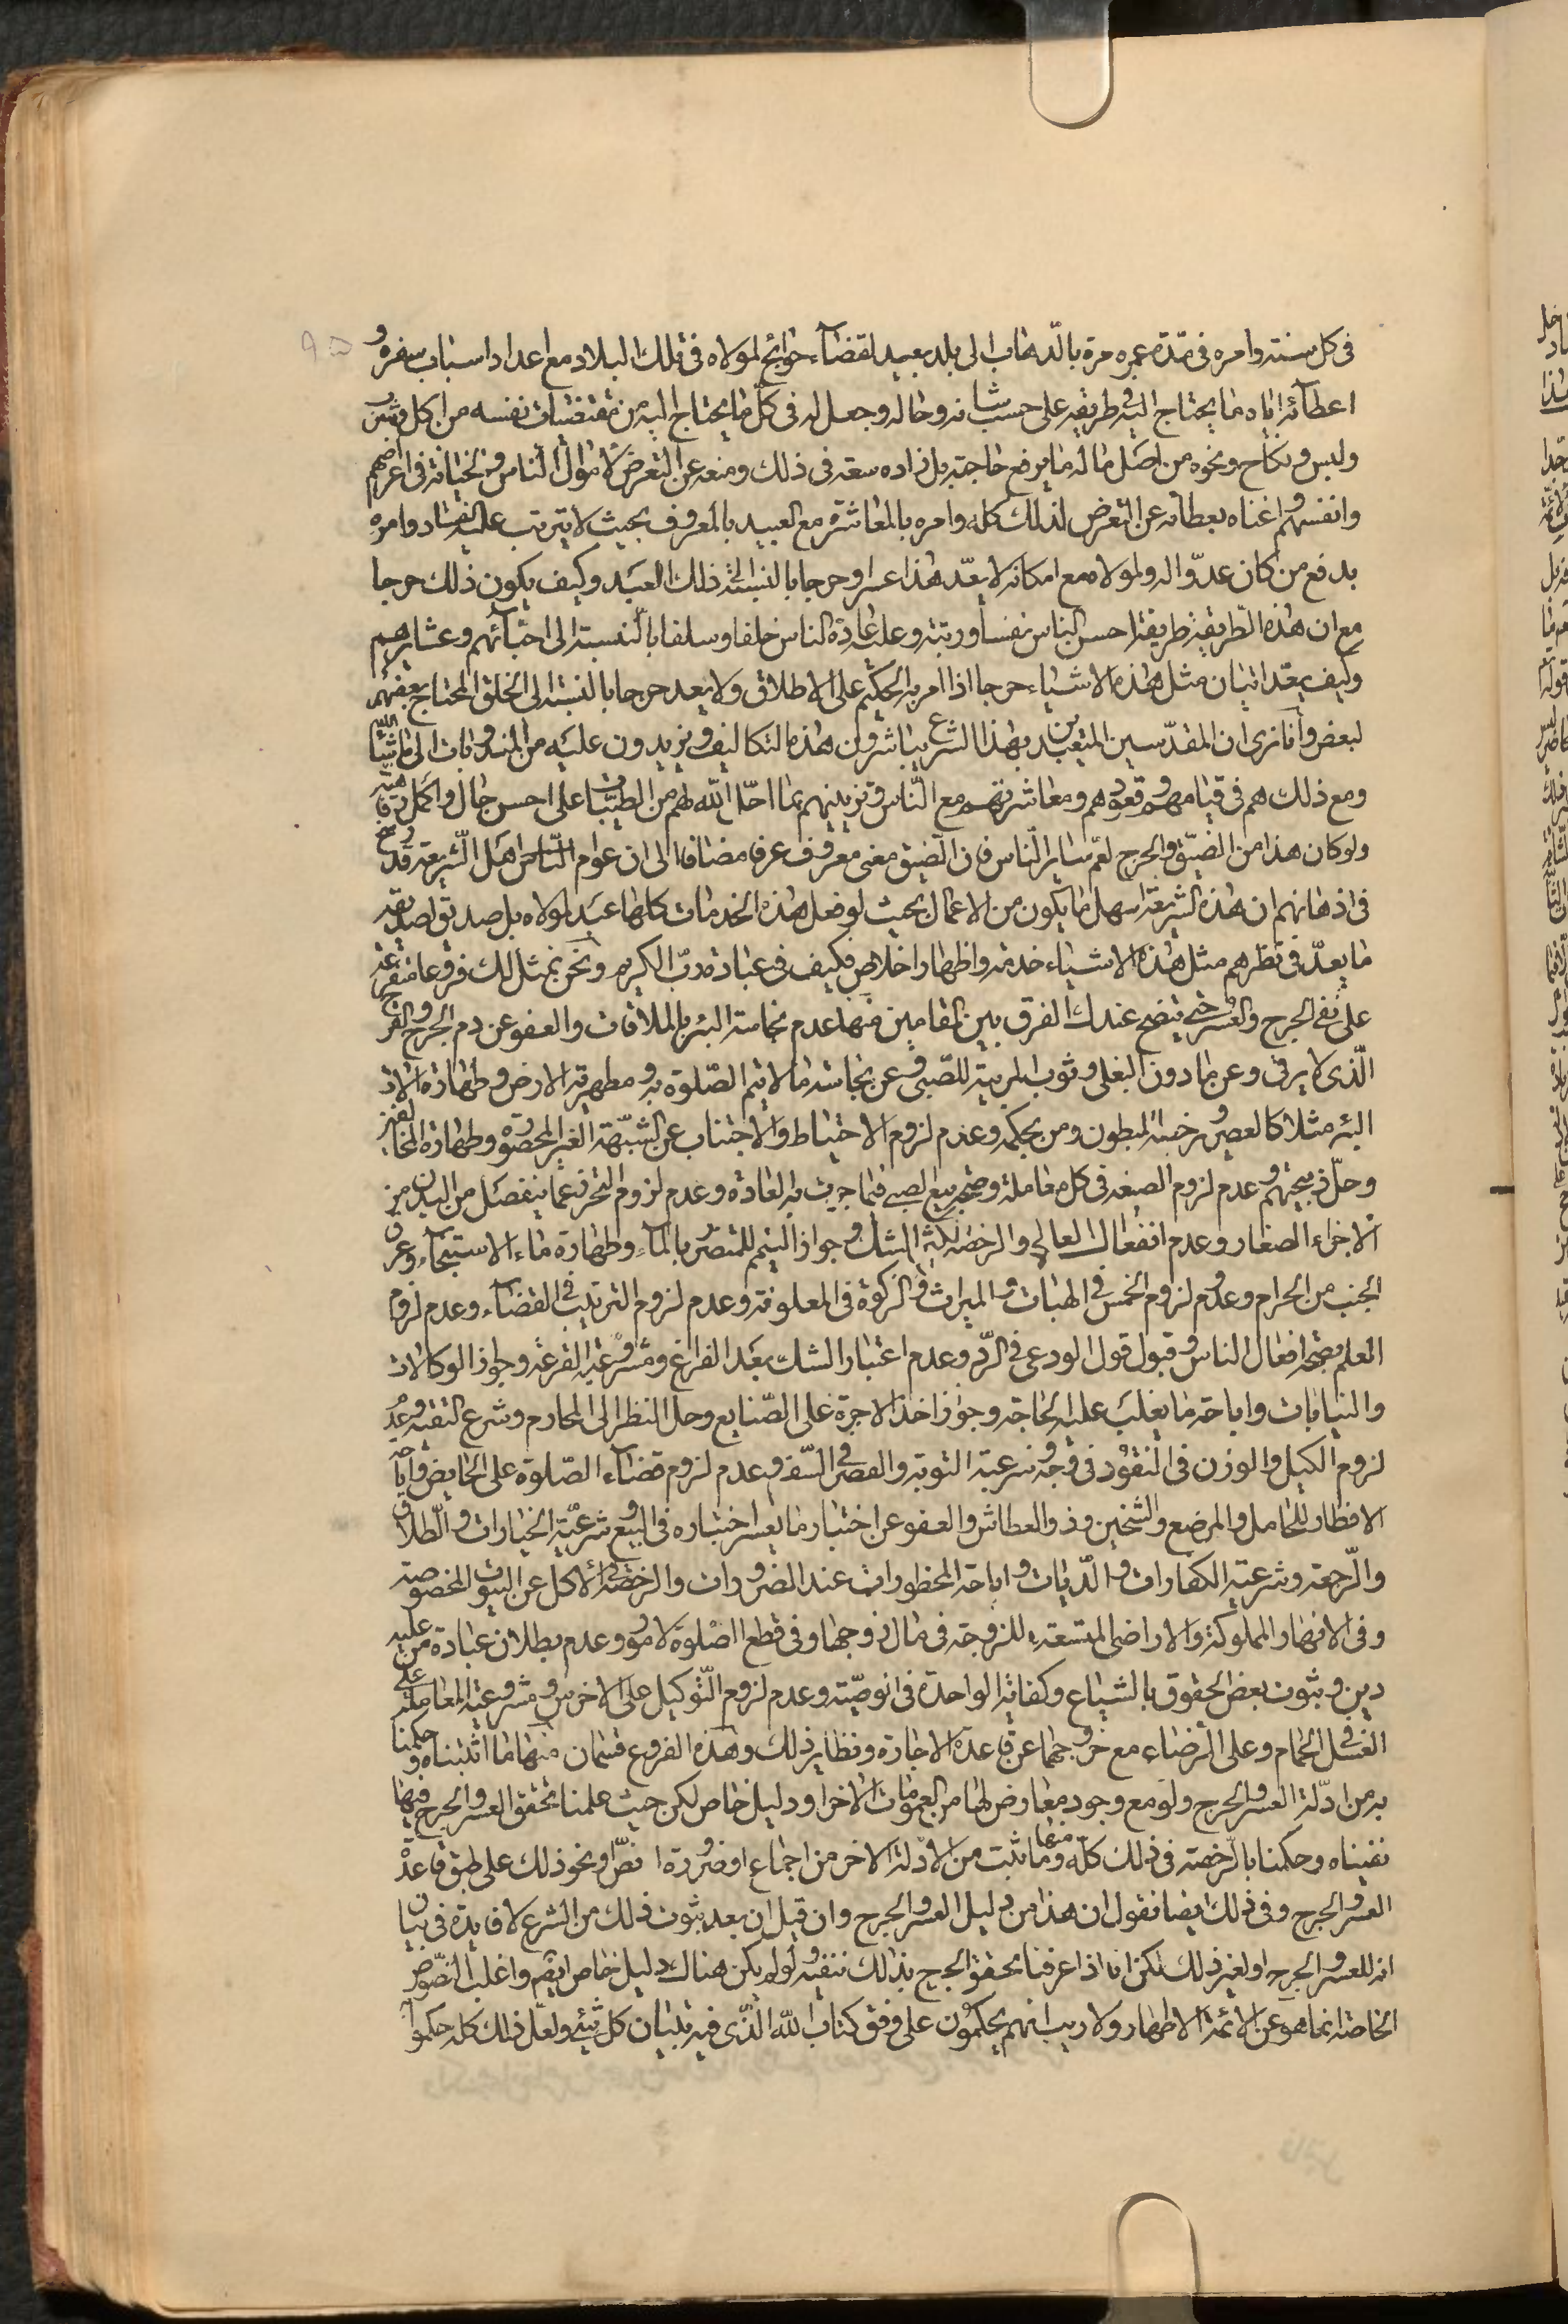 فى كل سنته وامره فى مدّة عمره مرة بالذهاب الى بلد بعيد لقضاء حوائج لمولاه فى تلك البلاد مع اعداد اسباب سفره و
اعطائه اياه ما يحتاج اليه فى طريقه على حسب شانه وحاله وجعل له فى كل ما يحتاج اليه من مقتضيات نفسه من اكل وشرب
ولبس ونكاح ونحوه من اصل ماله ما يرفع حاجته بل زاده سعته فى ذلك ومنعه عن التعرض لاموال الناس والخيانة فى اعراضهم
وانفسهم واغناه بعطائه عن التعرض لذلك كله وامره بالمعاشرة مع العبيد بالمعروف بحيث لا يترتب عليه فساد وامره
بدفع من كان عدوّا له ولمولاه مع امكانه لا يعدّ هذا عسرا وحرجا بالنسبة الى ذلك العبد وكيف يكون ذلك حرجا
مع ان هذه الطريقة طريقة احسن الناس نفسا ورتبة وعليه عادة الناس خلفا وسلفا بالنسبة الى احبائهم وعشايرهم
وكيف يعدّ اتيان مثل هذه الاشياء حرجا اذا امر به الحكيم على الاطلاق ولا يعد حرجا بالنسبة الى الخلق المحتاج بعضهم
لبعض وانا نرى ان المقدّسين المتعبدين بهذا الشرع يباشرون هذه التكاليف ويزيدون عليه من المندوبات الى ما شاء الله
ومع ذلك هم فى قيامهم وقعودهم ومعاشرتهم مع الناس وتزيينهم بما احلّ الله لهم من الطيبات على احسن حال واكمل رفاهية
ولو كان هذا من الضيق والحرج لعمّ ساير الناس فان الضيق معنى معروف عرفا مضافا الى ان عوام الناس اهل الشريعة قد رسخ
فى اذهانهم ان هذه الشريعة اسهل ما يكون من الاعمال بحيث لو فعل هذه الخدمات كلها عبد لمولاه بل صديق لصديقه
ما يعدّ فى نظرهم مثل هذه الاشياء خدمة واظهار اخلاص فكيف فى عبادة ربّ الكريم ونحن نمثل لك فروعا متفرعة
على نفى الحرج والعسر حتى يتضح عندك الفرق بين المقامين فمنها عدم نجاسة البئر بالملاقات والعفو عن دم الجروح والقروح
الّذى لا يرقى وعن ما دون البغلى وثوب المربية للصّبى وعن نجاسة ما لا يتم الصّلوة به ومطهرية الارض وطهارة آلات
البئر مثلا كالعصير ورخصة المبطون ومن بحكمه وعدم لزوم الاحتياط والاجتناب عن الشبّهة الغير المحصورة وطهارة المخالفين
وحلّ ذبيحتهم وعدم لزوم الصيغة فى كل معاملة وصحّة بيع الصبى فيما جرت به العادة وعدم لزوم التحرز عما ينفصل من البدن من
الاجزاء الصغار وعدم انفعال العالى والرخصة لكثير الشك وجواز التيمم للمتضرّر بالماء وطهارة ماء الاستنجاء وعرق
الجنب من الحرام وعدم لزوم الخمس فى الهبات والميراث والزكوة فى المعلوفة وعدم لزوم الترتيب فى القضاء وعدم لزوم
العلم بصحة افعال الناس وقبول قول الودعى فى الردّ وعدم اعتبار الشك بعد الفراغ ومشروعية القرعة وجواز الوكالات
والنيابات واباحة ما يغلب عليه الحاجة وجواز اخذ الاجرة على الصّنايع وحل النظر الى المحارم وشرع التقية وعدم
لزوم الكيل والوزن فى النقود فى وجه وشرعية التوبة والقصر فى السّفر وعدم لزوم قضاء الصّلوة على الحايض واباحة
الافطار للحامل والمرضع والشخين وذو العطاش والعفو عن اختبار ما يعسر اختباره فى البيع وشرعيّة الخيارات والطّلاق
والرّجعة وشرعية الكفارات والدّيات واباحة المحظورات عند الضرورات والرخصة فى الاكل عن البيوت المخصوصة
وفى الانهار المملوكة والاراضى المتسعة وللزوجة فى مال زوجها وفى قطع الصلوة لامور وعدم بطلان عبادة من عليه
دين وثبوت بعض الحقوق بالشياع وكفاية الواحدة فى الوصيّة وعدم لزوم التّوكيل على الاخرس ومشروعية المعاملة على
الغسل فى الحمام وعلى الرضاع مع خروجهما عن قاعدة الاجارة ونظاير ذلك وهذه الفروع قسمان منها ما اثبتناه وحكمنا
به من ادلّة العسر والحرج ولو مع وجود معارض لها من العمومات الاخر او دليل خاص لكن حيث علمنا تحقق العسر والحرج فيها
نفيناه وحكمنا بالرّخصة فى ذلك كلّه ومنها ما ثبت من الادلة الاخر من اجماع او ضرورة او نصّ او نحو ذلك على طبق قاعدة
العسر والحرج وفى ذلك ايضا نقول ان هذا من دليل العسر والحرج وان قيل ان بعد ثبوت ذلك من الشرع لا فايدة فى بيان
انه للعسر والحرج او لغير ذلك لكن انا اذا عرفنا تحقق الحرج بذلك ننفيه ولو لم يكن هناك دليل خاص ايضم واغلب النّصوص
الخاصة انما هو عن الائمة الاطهار ولا ريب انهم يحكمون على وفق كتاب الله الّذى فيه تبيان كل شىء ولعلّ ذلك كله حكموا